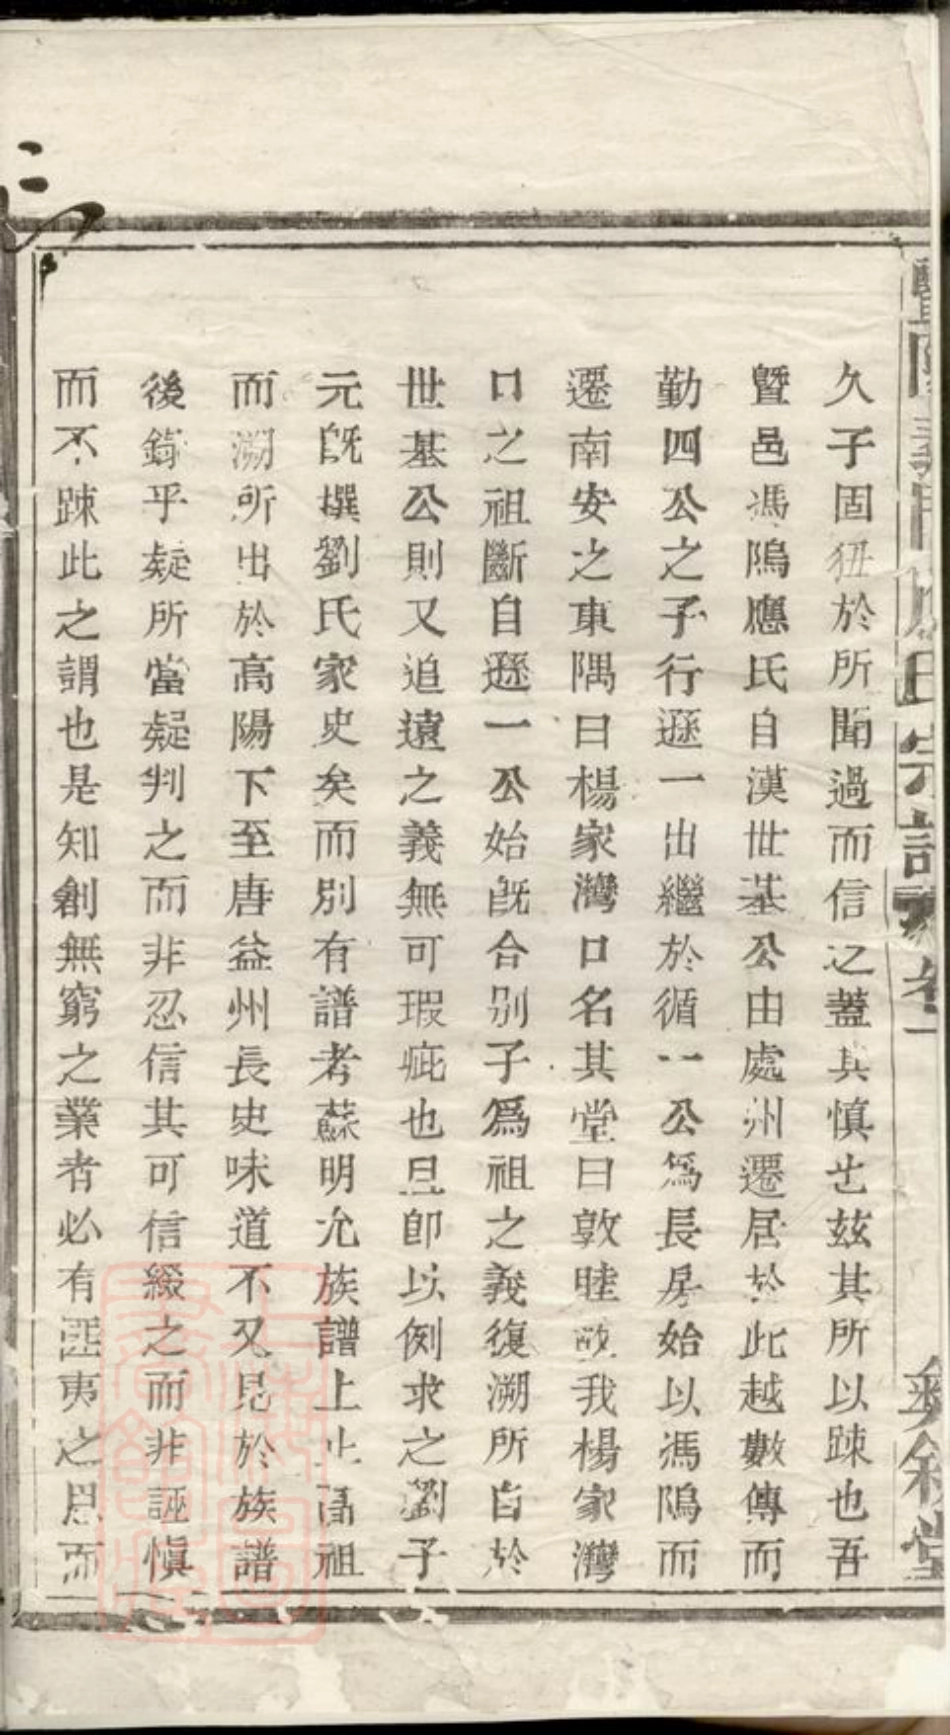 久子固狃於所聞過而信之蓋其慎也茲其所以踈也吾
暨邑馮隝應氏自漢世基公由處州遷居於此越數傳而
勤四公之子行遜一出繼於循一公爲長房始以馮隝而
遷南安之東隅曰楊家灣口名其堂曰敦睦故我楊家灣
口之祖斷自遜一公始旣合別子爲祖之義復溯所自於
世基公則又追遠之義無可瑕疵也且卽以例求之劉子
元旣撰劉氏家史矣而別有譜考蘇明允族譜上止高祖
而溯所出於高陽下至唐益州長史味道不又見於族譜
後錄乎疑所當疑判之而非忍信其可信綴之而非誣慎
而不踈此之謂也是知創無窮之業者必有匪夷之思而